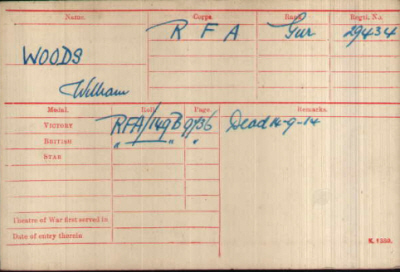 Name. Corps. Rank. Regtl. No.
WOODS R F A Gnr 29434
William
Medal. Roll. Page. Remarks.
VICTORY RFA/149B 9736 Dead 14-9-14
BRITISH " " "
STAR
Theatre of War first served in
Date of entry therein
K. 1380.